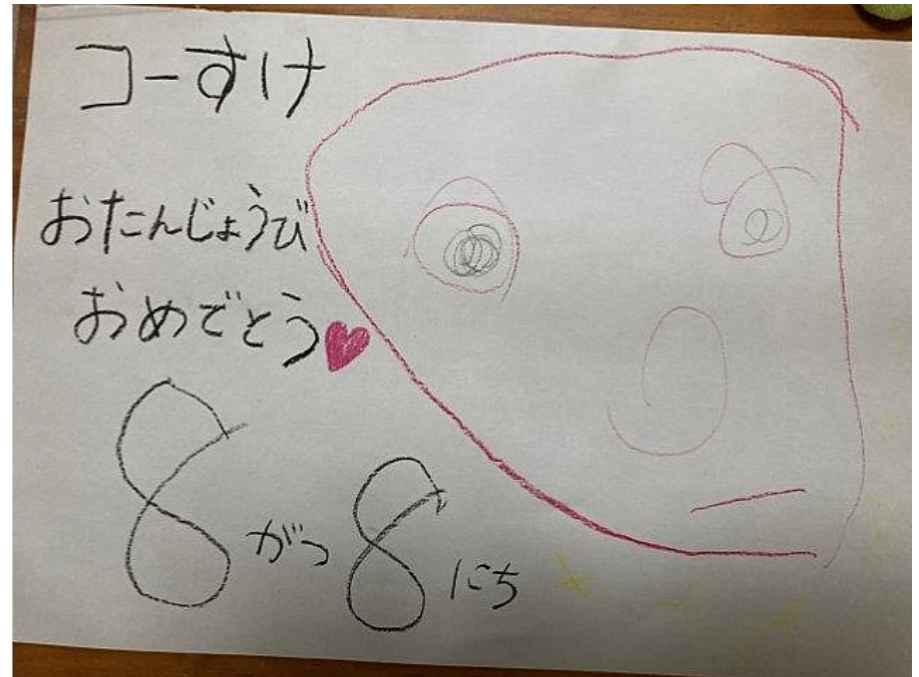 コーすけ
おたんじょうび
おめでとう♥
8がつ8にち